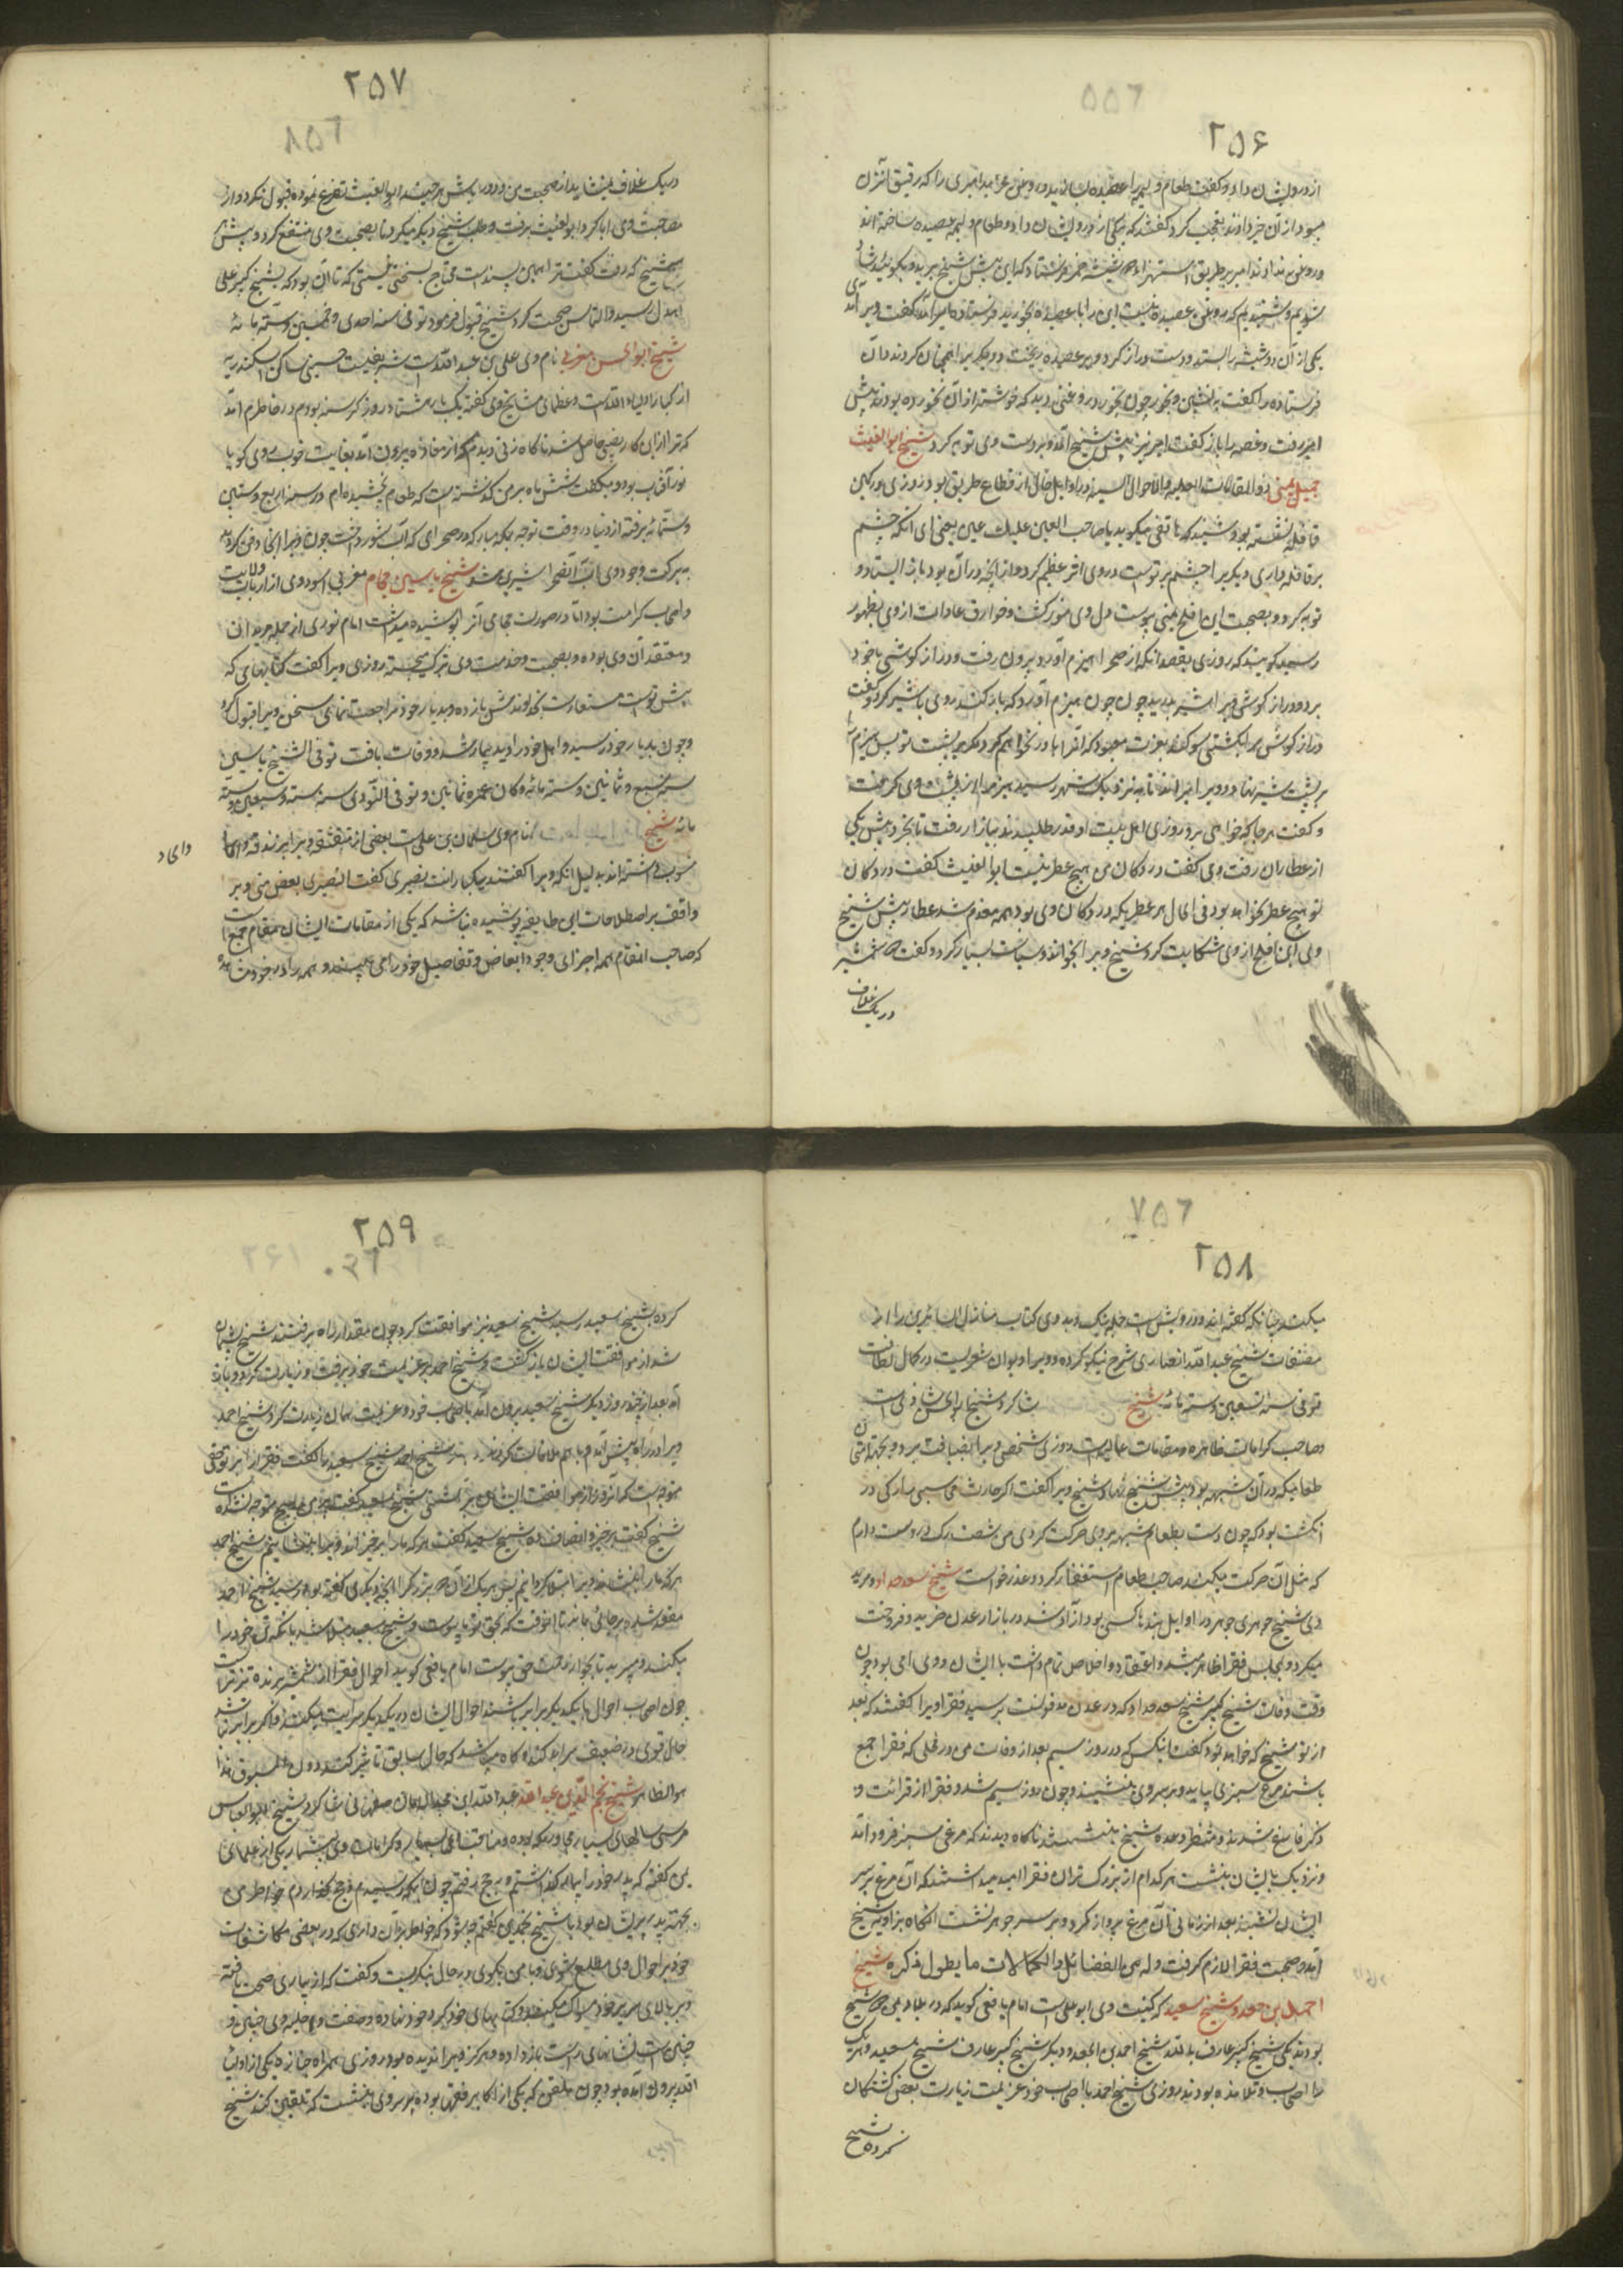 ۲۵۶
از درویشان داد و گفت طعام و لیمه را عصیده سازید و روغن
میبود از آن خبر دادند تعجب کرد گفتند که یکی از درویشان داد و طعام و لیمه عصیده ساخته‌اند
و روغن ندادند امیر بطریق استهزا دو شیشه خمر فرستاد که این پیش شیخ برید و بگویید
شنیدیم که روغن عصیده نیست این را با عصیده بخورید
یکی از آن دو شیشه را بستد و دست دراز کرد و بر عصیده ریخت و دیگر را همچنان کردند و آن
فرستاده را گفت بنشین و بخور چون بخورد روغنی دید که خوشتر از آن نخورده بود نزد پیش
امیر رفت و قصه را باز گفت امیر نیز پیش شیخ آمد و بر دست وی توبه کرد شیخ ابو الغیث
جمیل یمنی ذو المقامات العلیه والاحوال السنیه در اوایل حال از قطاع طریق بود روزی در کمین
قافله نشسته بود شنید که هاتفی میگوید یا صاحب العین علیک عین یعنی ای آنکه چشم
بر قافله داری دیگری را چشم بر توست در وی اثر عظیم کرد و از آنچه در آن بود باز ایستاد و
توبه کرد و بصحبت ابن افلح یمنی پیوست دل وی منور گشت و خوارق عادات از وی بظهور
رسید گویند که روزی بقصد آنکه از صحرا هیزم آورد بیرون رفت و دراز گوشی با خود
برد و دراز گوش ویرا شیر بدرید چون هیزم آورد که بار کند روی با شیر کرد و گفت
دراز گوش مرا بکشتی سوگند بعزت معبود که آنرا بار نخواهم کرد مگر بر پشت تو پس هیزم را
بر پشت شیر نهاد و ویرا میراند تا به نزدیک شهر رسید هیزم از پشت وی گرفت
و گفت هر جا که خواهی برو روزی اهل بیت او قدری طلبیدند ببازار رفت تا بخرد پیش یکی
از عطاران رفت وی گفت در دکان من هیچ عطر نیست ابو الغیث گفت در دکان
تو هیچ عطر نخواهد بود فی الحال هر عطر که در دکان وی بود همه معدوم شد عطار پیش شیخ
وی ابن افلح از وی شکایت کرد شیخ ویرا بخواند و سیاست بسیار کرد و گفت دو شمشیر
در یک غلاف
۲۵۷
در یک غلاف نشاید از صحبت من دور باش هر چند ابو الغیث تضرع نمود قبول نکرد و از
مصاحبت وی ابا کرد ابو الغیث برفت و طلب شیخ دیگر میکرد تا بصحبت وی منتفع گردد پیش
هر شیخ که رفت گفت ترا همین پسند است محتاج بشیخ نیستی تا آن بود که بشیخ کبیر علی
اهدل رسید و التماس صحبت کرد شیخ قبول فرمود توفی سنه احدی و خمسین و ستمائه
شیخ ابو الحسن مغربی نام وی علی بن عبد الله است شریفیست حسینی ساکن اسکندریه
از کبار اولیاء الله است و عظمای مشایخ وی گفته یک بار هشتاد روز گرسنه بودم در خاطرم آمد
که ترا از این کار نصیبی حاصل شد ناگاه زنی دیدم که از مغاره بیرون آمد بغایت خوب روی گویا
نور آفتاب بود و میگفت شش ماه بر من گذشته است که طعام نچشیده‌ام در سنه اربع و ستین
و ستمائه برفته از دنیا در وقت توجه بمکه مبارکه در صحرای که آب شور داشت چون ویرا آنجا دفن کردند
به برکت وجود وی آب آنصحرا شیرین شد شیخ یاسین حجام مغربی اسود وی از ارباب ولایت
و اصحاب کرامت بود اما در صورت حجامی آنرا پوشیده میداشت امام نووی از جمله مریدان
و معتقدان وی بوده و بصحبت و خدمت وی تبرک میجسته روزی ویرا گفت کتابهای که
پیش توست مستعار است بخداوندش باز ده و بدیار خود مراجعت نمای سخن ویرا قبول کرد
و چون بدیار خود رسید و اهل خود را دید بیمار شد و وفات یافت توفی الشیخ یاسین
سنه سبع و ثمانین و ستمائه و کان عمره ثمانین و توفی النووی سنه ست و سبعین و ستمائه
مائه شیخ نام وی سلیمان بن علی است بعضی از متفقه ویرا بزندقه و الحاد
و الحاد
منسوب داشته‌اند بدلیل آنکه ویرا گفتند میگویند انت نصیری گفت النصیری بعض منی و بر
واقف بر اصطلاحات این طایفه پوشیده نباشد که یکی از مقامات ایشان مقام جمع است
که صاحب آنمقام همه اجزای وجود را ابعاض و تفاصیل خود می بیند و همه را در خود مشاهده
۲۵۸
میکند چنانکه گفته‌اند جز درویش است جمله نیک و بد وی کتاب منازل السائرین را از
مصنفات شیخ عبد الله انصاری شرح نیکو کرده و ویرا دیوان شعریست در کمال لطافت
توفی سنه تسعین و ستمائه شیخ شاگرد شیخ ابو الحسن شاذلی است
و صاحب کرامات ظاهره و مقامات عالیه است روزی شخصی ویرا بضیافت برد و بجهت امتحان
طعامیکه در آن شبهه بود پیش شیخ نهاد شیخ ویرا گفت اگر حارث محاسبی را رگی در
انگشت بود که چون دست بطعام شبهه بردی حرکت کردی من شصت رگ در دست دارم
که مثل آن حرکت میکند صاحب طعام استغفار کرد و عذر خواست شیخ سعد حداد و مرید
وی شیخ جوهر جوهر در اوایل بنده کسی بود آزاد شد در بازار عدن خرید و فروخت
میکرد و بمجلس فقرا حاضر میشد و اعتقاد و اخلاص تمام داشت با ایشان و وی امی بود چون
وقت وفات شیخ کبیر شیخ سعد حداد که در عدن مدفونست برسید فقرا ویرا گفتند که بعد
از تو شیخ که خواهد بود گفت آنکس که در روز سیم بعد از وفات من در محلی که فقرا جمع
باشند مرغ سبزی بیاید و بر سر وی بنشیند و چون روز سیم شد و فقرا از قرائت و
ذکر فارغ شدند و منتظر وعده شیخ بنشستند ناگاه دیدند که مرغی سبز فرود آمد
و نزدیک بایشان بنشست هر کدام از بزرگ تران فقرا امید میداشتند که آن مرغ بر سر
ایشان نشیند بعد از زمانی آن مرغ پرواز کرد و بر سر جوهر نشست آنگاه بزاویه شیخ
آمد و صحبت فقرا لازم گرفت و له من الفضائل و الکمالات ما یطول ذکره شیخ
احمد بن جعد و شیخ سعید که کنیت وی ابو عیسی است امام یافعی گوید که در بلاد یمن دو شیخ
بودند یکی شیخ کبیر عارف بالله شیخ احمد بن الجعد و دیگر شیخ کبیر عارف شیخ سعید و هر یک
را اصحاب و تلامذه بودند روزی شیخ احمد با اصحاب خود عزیمت زیارت بعضی گذشتگان
کرده شیخ
۲۵۹
کرده بشیخ سعید رسید شیخ سعید نیز موافقت کرد چون مقدار راه برفتند شیخ پشیمان
شد از موافقت ایشان باز گشت و شیخ احمد بر عزیمت خود برفت و زیارت کرد و باز
آمد بعد از چند روز دیگر شیخ سعید بیرون آمد با اصحاب خود و عزیمت همان زیارت کرد شیخ احمد
ویرا در راه پیش آمد و با هم ملاقات کردند شیخ احمد شیخ سعید را گفت فقرا را بر تو حقی
متوجه است که آنروز از موافقت ایشان برگشتی شیخ سعید گفت بر من هیچ متوجه نشده است
شیخ گفت برخیز و انصاف ده شیخ سعید گفت هر که ما را برخیزاند ویرا بنشانیم شیخ احمد
هر که ما را بنشاند ویرا مبتلا گردانیم پس هر یک از آن دو بزرگ را آنچه دیگری گفته بود رسید شیخ احمد
مقعد شد و بر جای بماند تا آنوقت که بحق تعالی پیوست و شیخ سعید مبتلا شد بآنکه تن خود را
میکند و میبرید تا بجوار رحمت حق پیوست امام یافعی گوید احوال فقرا از شمشیر برنده تیزتر است
چون اصحاب احوال با یکدیگر برابر باشند احوال ایشان در یکدیگر سرایت میکند و اگر برابر نباشند
حال قوی در ضعیف سرایت کند و گاه میباشد که حال سابق تاثیر کند دون المسبوق هذا
هو الظاهر شیخ نجم الدین عبد الله عبد الله ابن محمد اصفهانی شاگرد شیخ ابو العباس
مرسی سالهای بسیار مجاور مکه بوده و مناقب وی بسیار و کرامات وی بیشمار یکی از علمای
یمن گفته که پدر خود را بیمار گذاشتم و به حج رفتم چون بمکه رسیدم و حج گذاردم خواطر من
بجهت پدر پریشان بود با شیخ نجم الدین گفتم چه شود که خواطر بر آن داری که در بعضی مکاشفات
خود بر احوال وی مطلع شوی و با من بگوی در حال نگریست و گفت که از بیماری صحت یافته
و بر بالای سریر خود مسواک میکند و کتابهای خود گرد خود نهاده و صفت و حلیه وی چنین و
چنین است نشانهای راست باز داده و هرگز ویرا ندیده بود روزی همراه جنازه یکی از اولیا
الله بیرون آمده بود چون ملقن که یکی از اکابر فقها بوده بر سر وی بنشست که تلقین کند شیخ